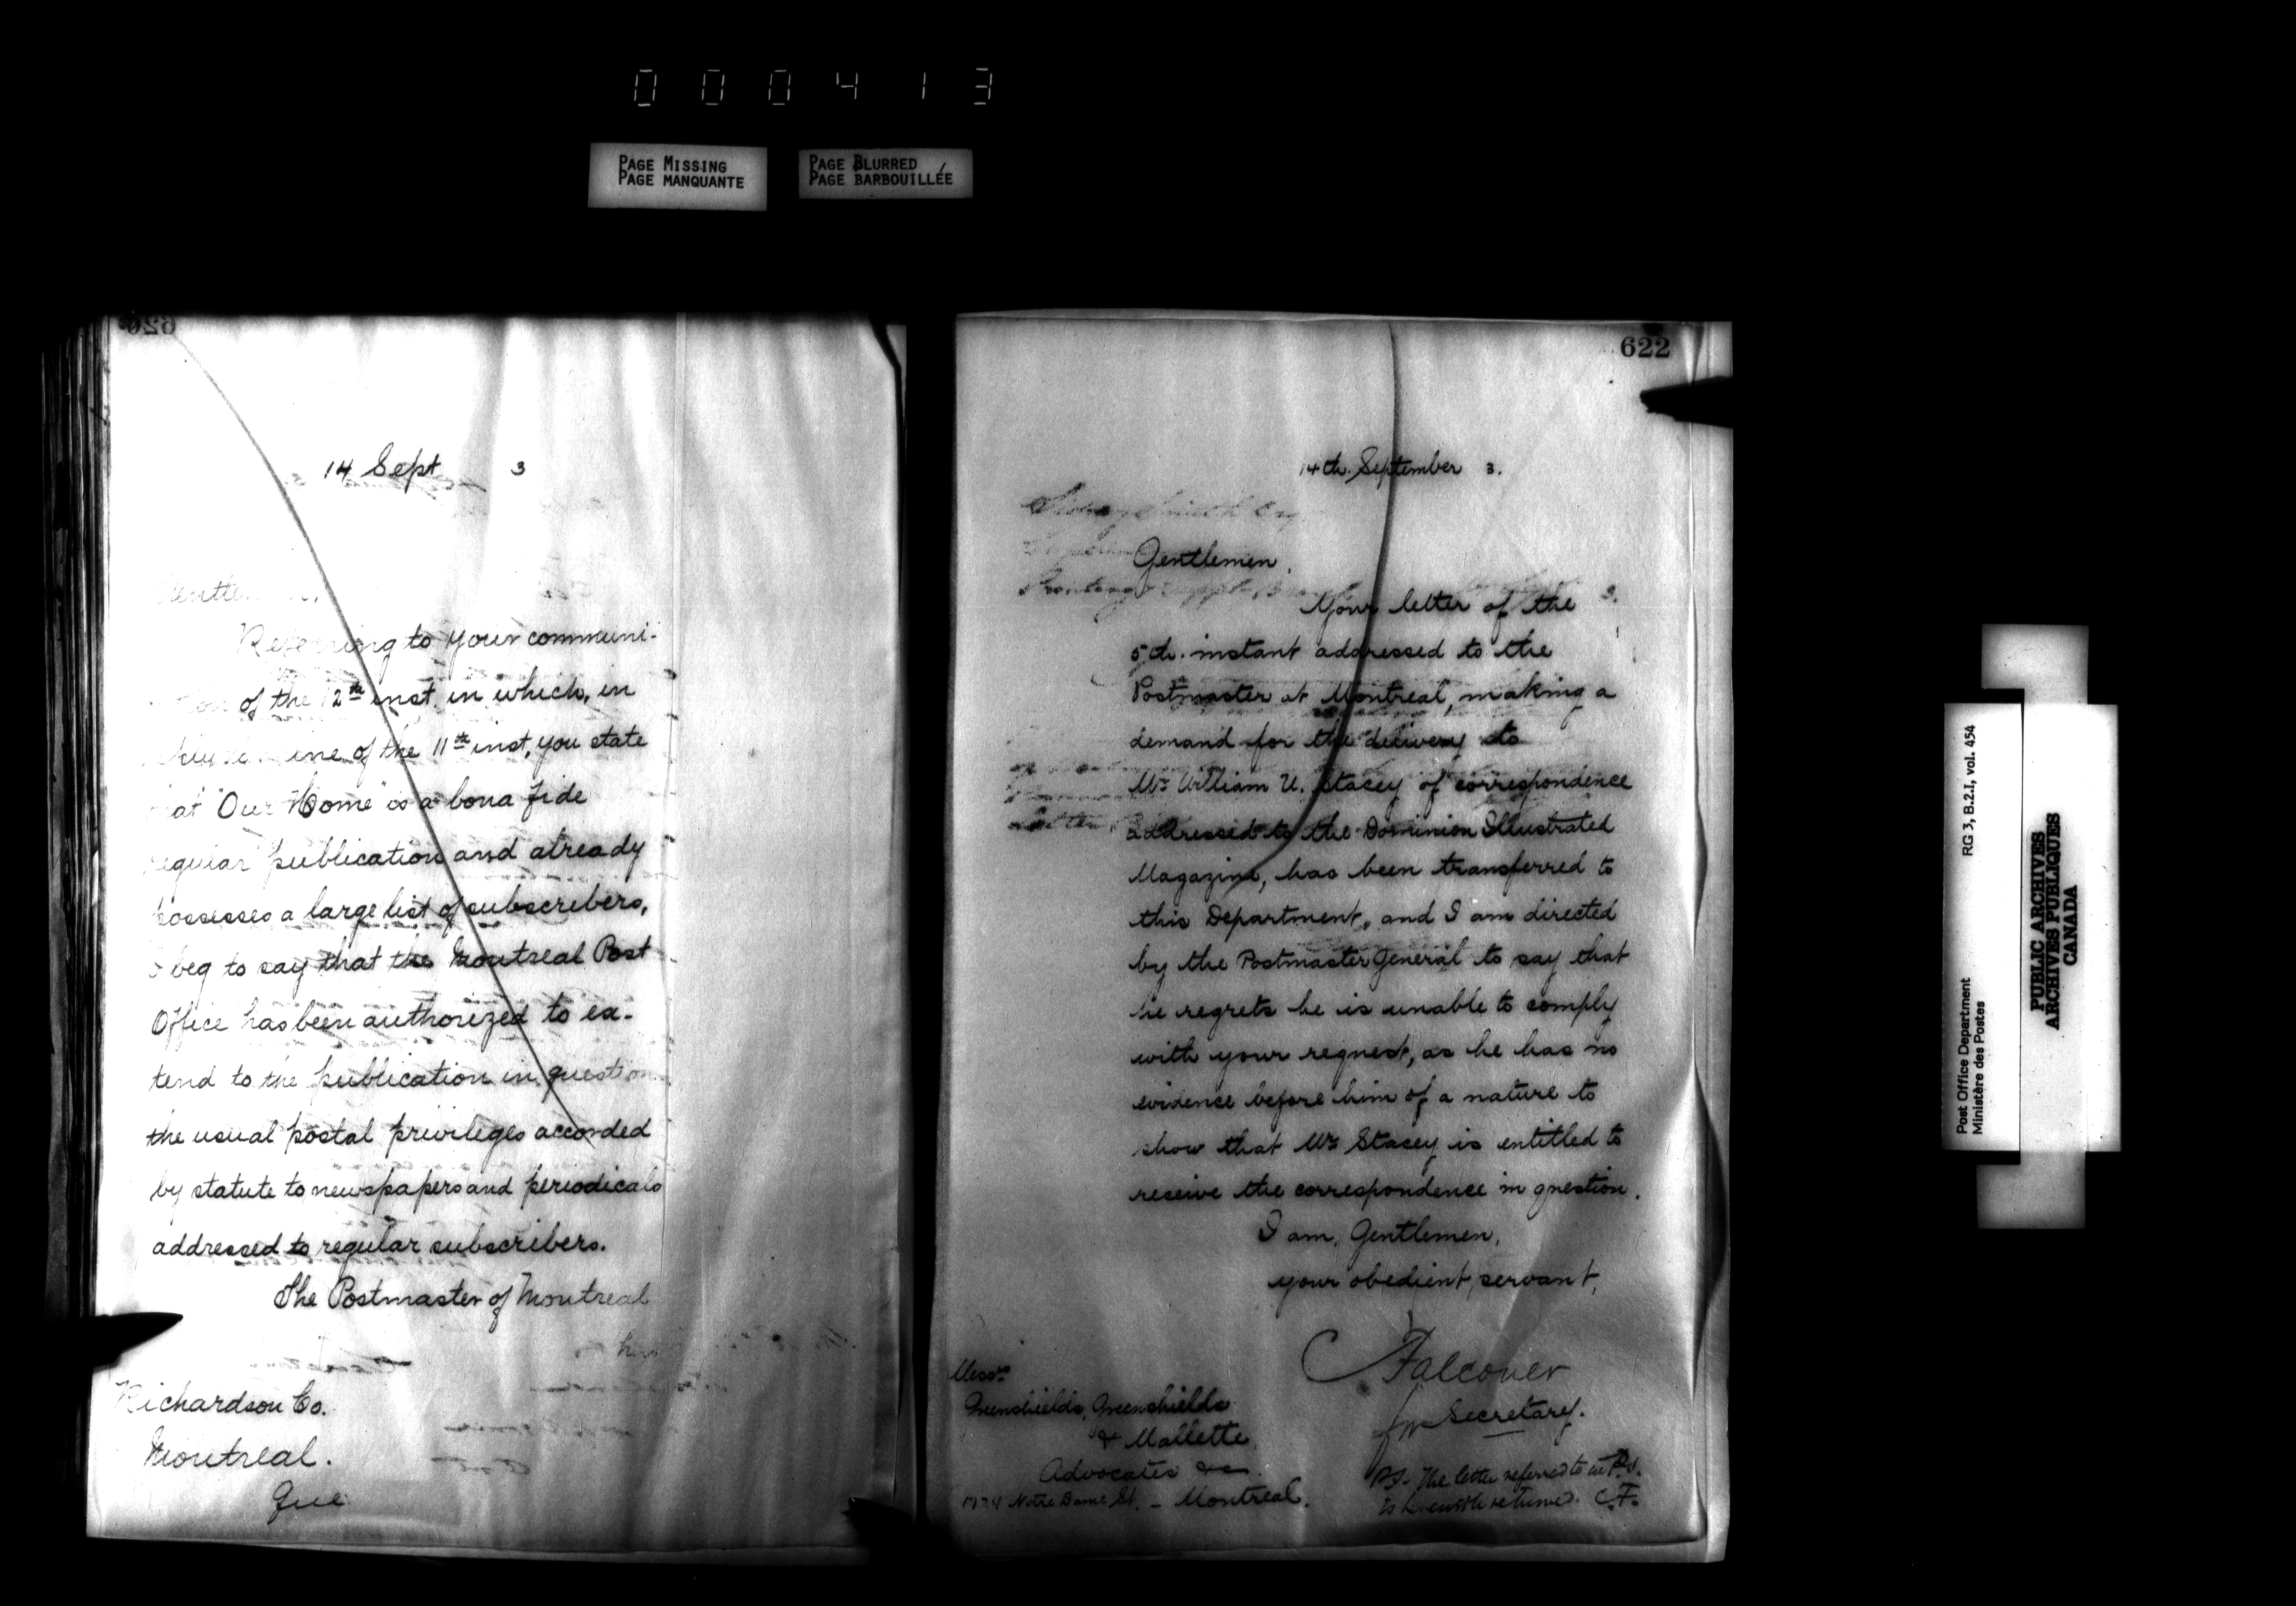 000413
PAGE MISSING
PAGE MANQUANTE
PAGE BLURRED
PAGE BARBOUILLÉE
620
14 Sept 3
Gentlemen,
Referring to your communi-
of the 12th inst. in which, in
of the 11th inst, you state
that "Our Home" is a bona fide
regular publication and already
possesses a large list of subscribers,
I beg to say that the Montreal Post
Office has been authorized to ex-
tend to the publication in question
the usual postal privileges accorded
by statute to newspapers and periodicals
addressed to regular subscribers.
The Postmaster of Montreal
has
Richardson Co.
Montreal.
Que
622
14th. September 3.
Gentlemen,
Your letter of the
5th. instant addressed to the
Postmaster at Montreal, making a
demand for the delivery to
Mr William U. Stacey of correspondence
addressed to the Dominion Illustrated
Magazine, has been transferred to
this Department, and I am directed
by the Postmaster General to say that
he regrets he is unable to comply
with your request, as he has no
evidence before him of a nature to
show that Mr Stacey is entitled to
receive the correspondence in question.
I am, Gentlemen,
your obedient servant,
C Falconer
for Secretary.
Messrs
Greenshields, Greenshields
& Mallette
Advocates &c.
Notre Dame St. - Montreal.
P.S. The letter referred to
is herewith returned. C.F.
Post Office Department
Ministère des Postes
RG 3, B.2.I, vol. 454
PUBLIC ARCHIVES
ARCHIVES PUBLIQUES
CANADA